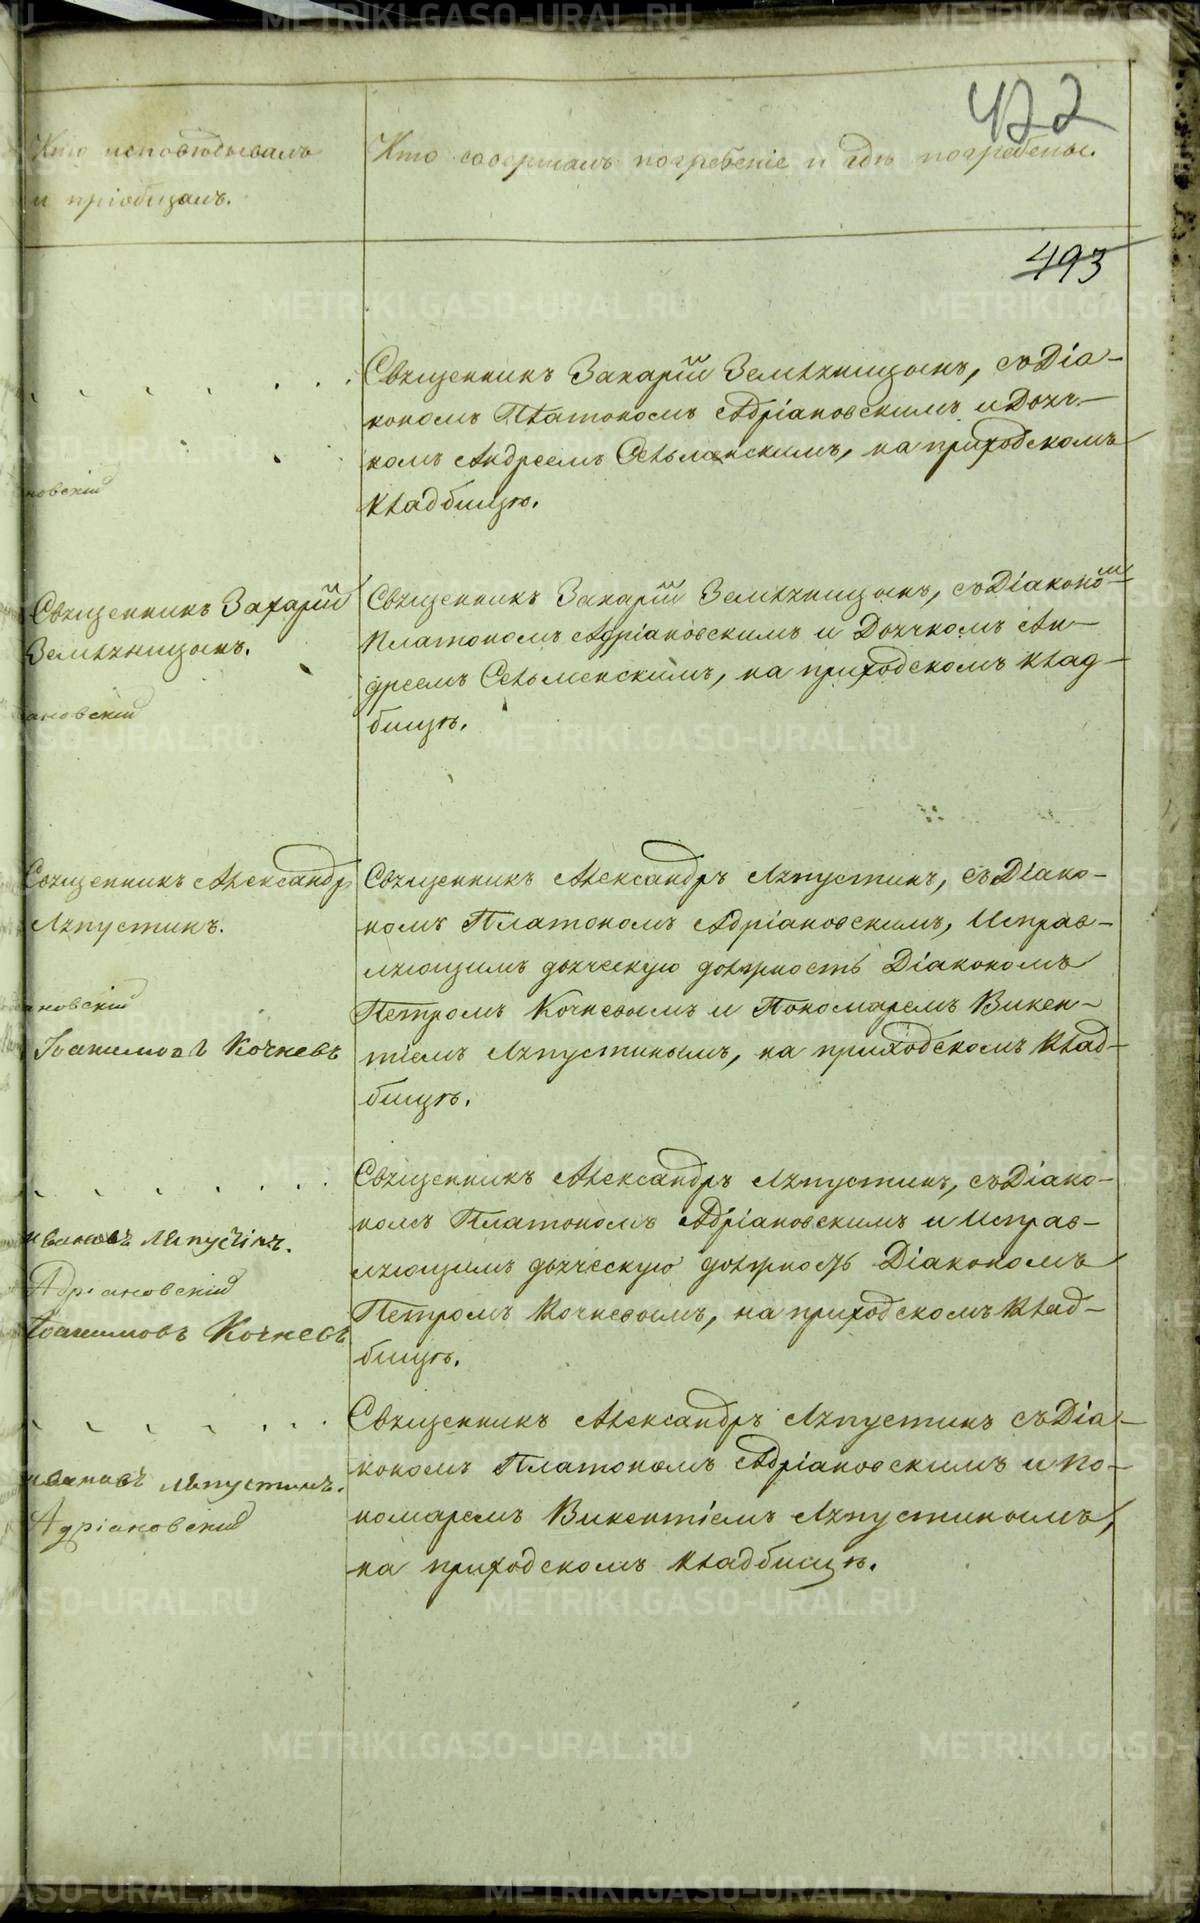 422
Кто исповѣдывалъ
и пріобщалъ.
Кто совершалъ погребеніе и гдѣ погребены.
493
Священникъ Захарій Земляницынъ, съ Діа-
кономъ Платономъ Адріановскимъ и Дьяч-
комъ Андреемъ Сельменскимъ, на приходскомъ
кладбищѣ.
новскій
Священникъ Захарій
Земляницынъ.
ановскій
Священникъ Захарій Земляницынъ, съ Діакономъ
Платономъ Адріановскимъ и Дьячкомъ Ан-
дреемъ Сельменскимъ, на приходскомъ клад-
бищѣ.
Священникъ Александръ
Ляпустинъ.
ановскій
Іоакимовъ Кочневъ
Священникъ Александръ Ляпустинъ, съ Діако-
номъ Платономъ Адріановскимъ, Исправ-
ляющимъ дьяческую должность Діакономъ
Петромъ Кочневымъ и Пономаремъ Викен-
тіемъ Ляпустинымъ, на приходскомъ клад-
бищѣ.
Ивановъ Ляпустинъ.
Адріановскій
Іоакимовъ Кочневъ
Священникъ Александръ Ляпустинъ, съ Діако-
номъ Платономъ Адріановскимъ и Исправ-
ляющимъ дьяческую должность Діакономъ
Петромъ Кочневымъ, на приходскомъ клад-
бищѣ.
Ивановъ Ляпустинъ.
Адріановскій
Священникъ Александръ Ляпустинъ съ Діа-
кономъ Платономъ Адріановскимъ и По-
номаремъ Викентіемъ Ляпустинымъ,
на приходскомъ кладбищѣ.
METRIKI.GASO-URAL.RU